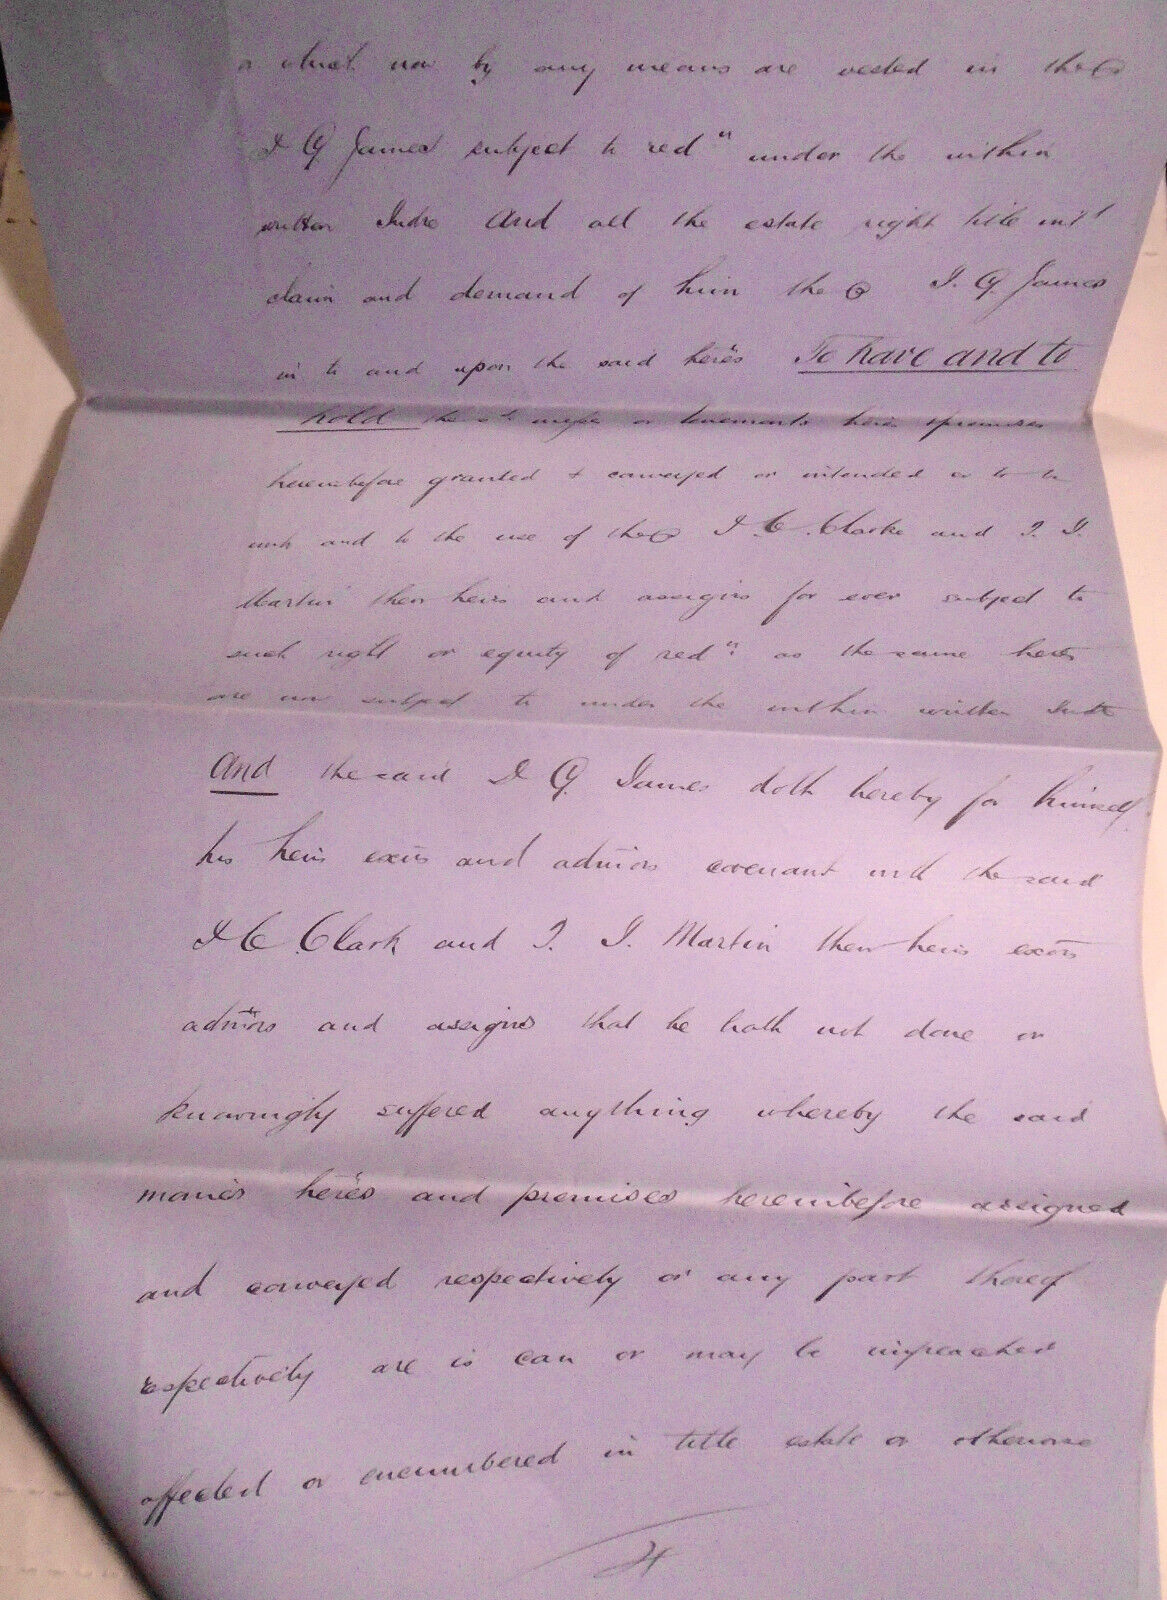 or which now by any means are vested in the sd
J G James subject to redn under the within
written Indre and all the estate right title intt
claim and demand of him the sd J. G. James
in to and upon the said heres To have and to
hold the sd messe or tenements heres & premises
hereinbefore granted & conveyed or intended so to be
unto and to the use of the sd J C. Clarke and T. J.
Martin their heirs and assigns for ever subject to
such right or equity of redn: as the same heres
are now subject to under the within written Indre
And the said J G. James doth hereby for himself
his heirs exors and admors covenant with the said
J C Clark and T. J. Martin their heirs exors
admors and assigns that he hath not done or
knowingly suffered anything whereby the said
monies heres and premises hereinbefore assigned
and conveyed respectively or any part thereof
respectively are is can or may be impeached
affected or encumbered in title estate or otherwise